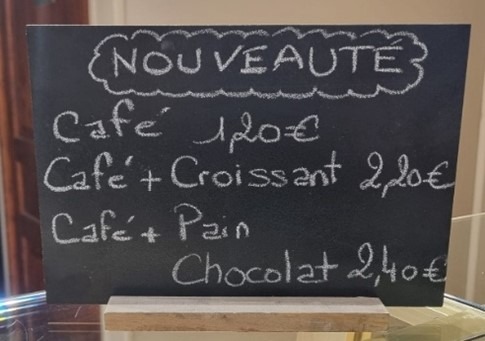 NOUVEAUTÉ
Café 1,20€
Café + Croissant 2,20€
Café + Pain
Chocolat 2,40€